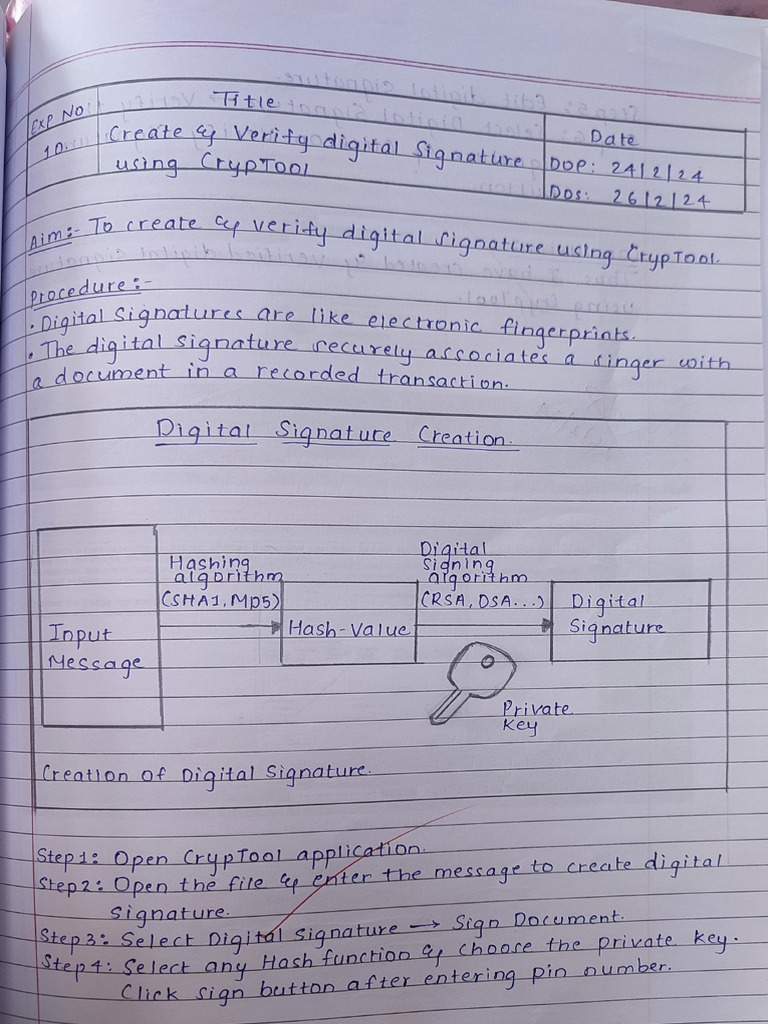 EXP NO
Title
Date
10.
Create & Verify digital Signature
using CrypTOOl
DOP: 24/2/24
DOS: 26/2/24
Aim:- To create & verify digital signature using CrypTOOl.
Procedure:-
• Digital Signatures are like electronic fingerprints.
• The digital signature securely associates a singer with
a document in a recorded transaction.
Digital Signature Creation.
Input
Message
Hashing
algorithm
(SHA1, MD5)
Hash-Value
Digital
Signing
algorithm
(RSA, DSA...)
Private
Key
Digital
Signature
Creation of Digital Signature.
Step1: Open CrypTool application.
Step2: Open the file & enter the message to create digital
signature.
Step3: Select Digital Signature → Sign Document.
Step4: Select any Hash function & choose the private key.
Click sign button after entering pin number.